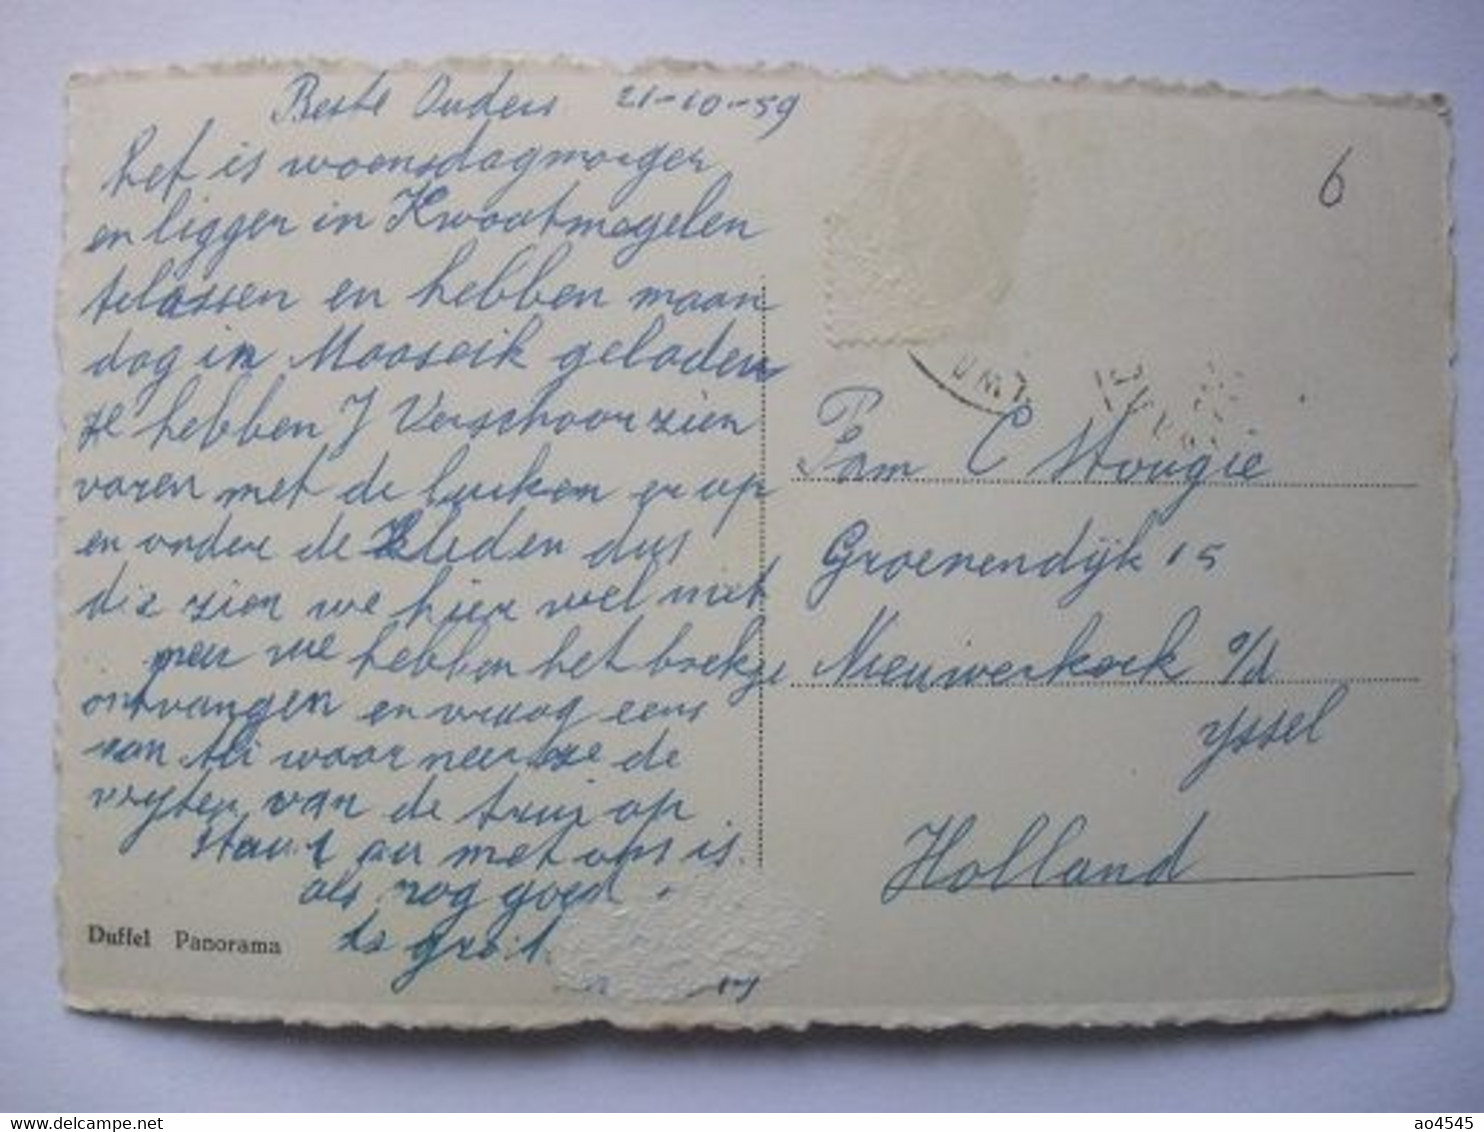 Beste Ouders 21-10-59
het is woensdagmorgen
en liggen in Kwaatmegelen
telassen en hebben maan
dag in Maaseik geladen
ze hebben J Verschoor zien
varen met de luiken er op
en ondere de kleden dus
die zien we hier wel niet
meer we hebben het boekje
ontvangen en vraag eens
aan Ali waarneer ze de
vrijter van de trui op
stau t en met ons is
als nog goed
de groet
Duffel Panorama
6
Fam C Stougie
Groenendijk 15
Nieuwerkerk o/d
yssel
Holland
ao4545